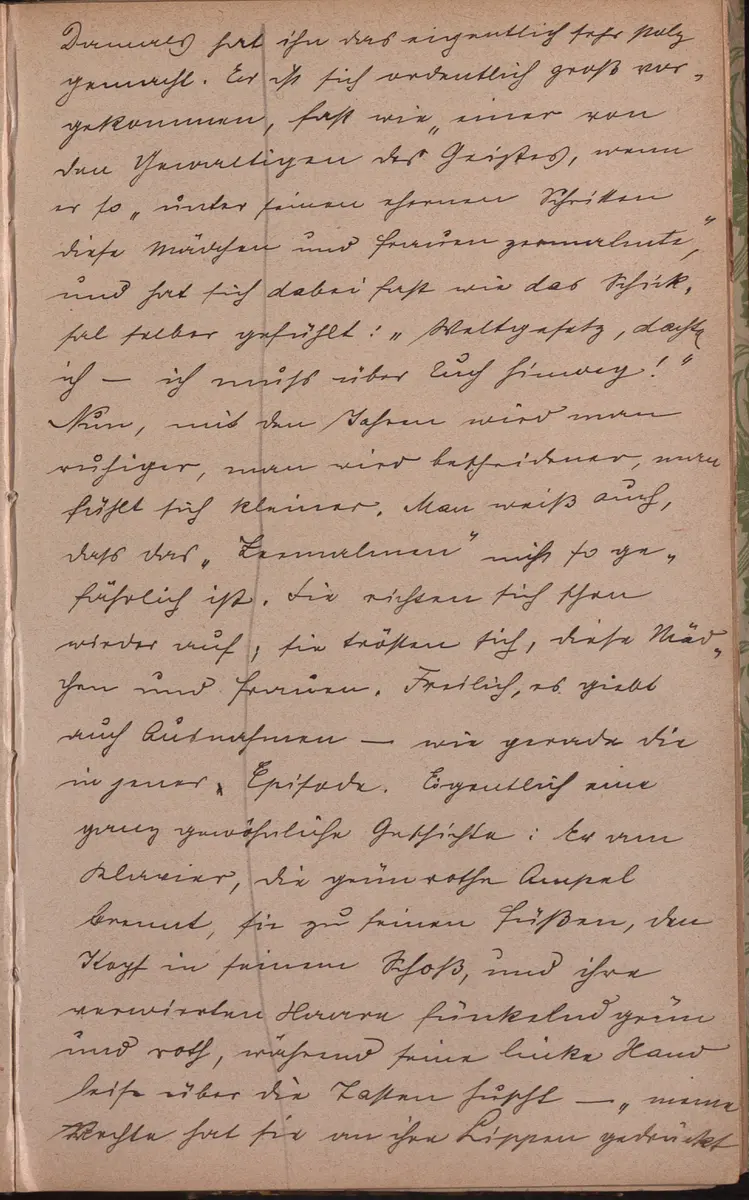 Damals hat ihn das eigentlich sehr stolz
gemacht. Er ist sich ordentlich groß vor-
gekommen, fast wie „einer von
den Gewaltigen des Geistes, wenn
er so „unter seinen ehernen Schritten
diese Mädchen und Frauen zermalmte,"
und hat sich dabei fast wie das Schick-
sal selber gefühlt: „Weltgesetz, dachte
ich — ich muss über Euch hinweg!"
Nun, mit den Jahren wird man
ruhiger, man wird bescheidener, man
fühlt sich kleiner. Man weiß auch,
dass das „Zermalmen" nicht so ge-
fährlich ist. Sie richten sich schon
wieder auf, sie trösten sich, diese Mäd-
chen und Frauen. Freilich, es giebt
auch Ausnahmen — wie gerade die
in jener Episode. Eigentlich eine
ganz gewöhnliche Geschichte: Er am
Klavier, die grün rothe Ampel
brennt, sie zu seinen Füßen, den
Kopf in seinem Schoß, und ihre
verwirrten Haare funkelnd grün
und roth, während seine linke Hand
leise über die Tasten huscht — „meine
Rechte hat sie an ihre Lippen gedrückt